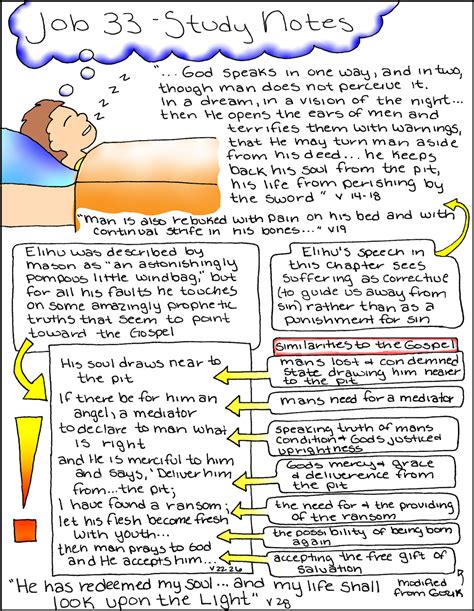 Job 33 - Study Notes
z z z z
"... God speaks in one way, and in two,
though man does not perceive it.
In a dream, in a vision of the night...
then He opens the ears of men and
terrifies them with warnings,
that He may turn man aside
from his deed... he keeps
back his soul from the pit,
his life from perishing by
the sword" v 14-18
"man is also rebuked with pain on his bed and with
continual strife in his bones..." v19
Elihu was described by
mason as "an astonishingly
pompous little windbag," but
for all his faults he touches
on some amazingly prophetic
truths that seem to point
toward the Gospel
Elihu's speech in
this chapter sees
suffering as corrective
(to guide us away from
sin) rather than as a
punishment for sin
similarities to the Gospel
His soul draws near to
the pit
If there be for him an
angel, a mediator
to declare to man what
is right
and He is merciful to him
and says, 'Deliver him
from...the pit;
I have found a ransom;
let his flesh become fresh
with youth...
then man prays to God
and He accepts him...
v 22-26
mans lost & condemned
state drawing him nearer
to the pit
mans need for a mediator
speaking truth of mans
condition & Gods justice &
uprightness
Gods mercy & grace
& deliverance from the
pit
the need for & the providing
of the ransom
the possibility of being born
again
accepting the free gift of
salvation
"He has redeemed my soul... and my life shall
look upon the Light" v 28
modified
from